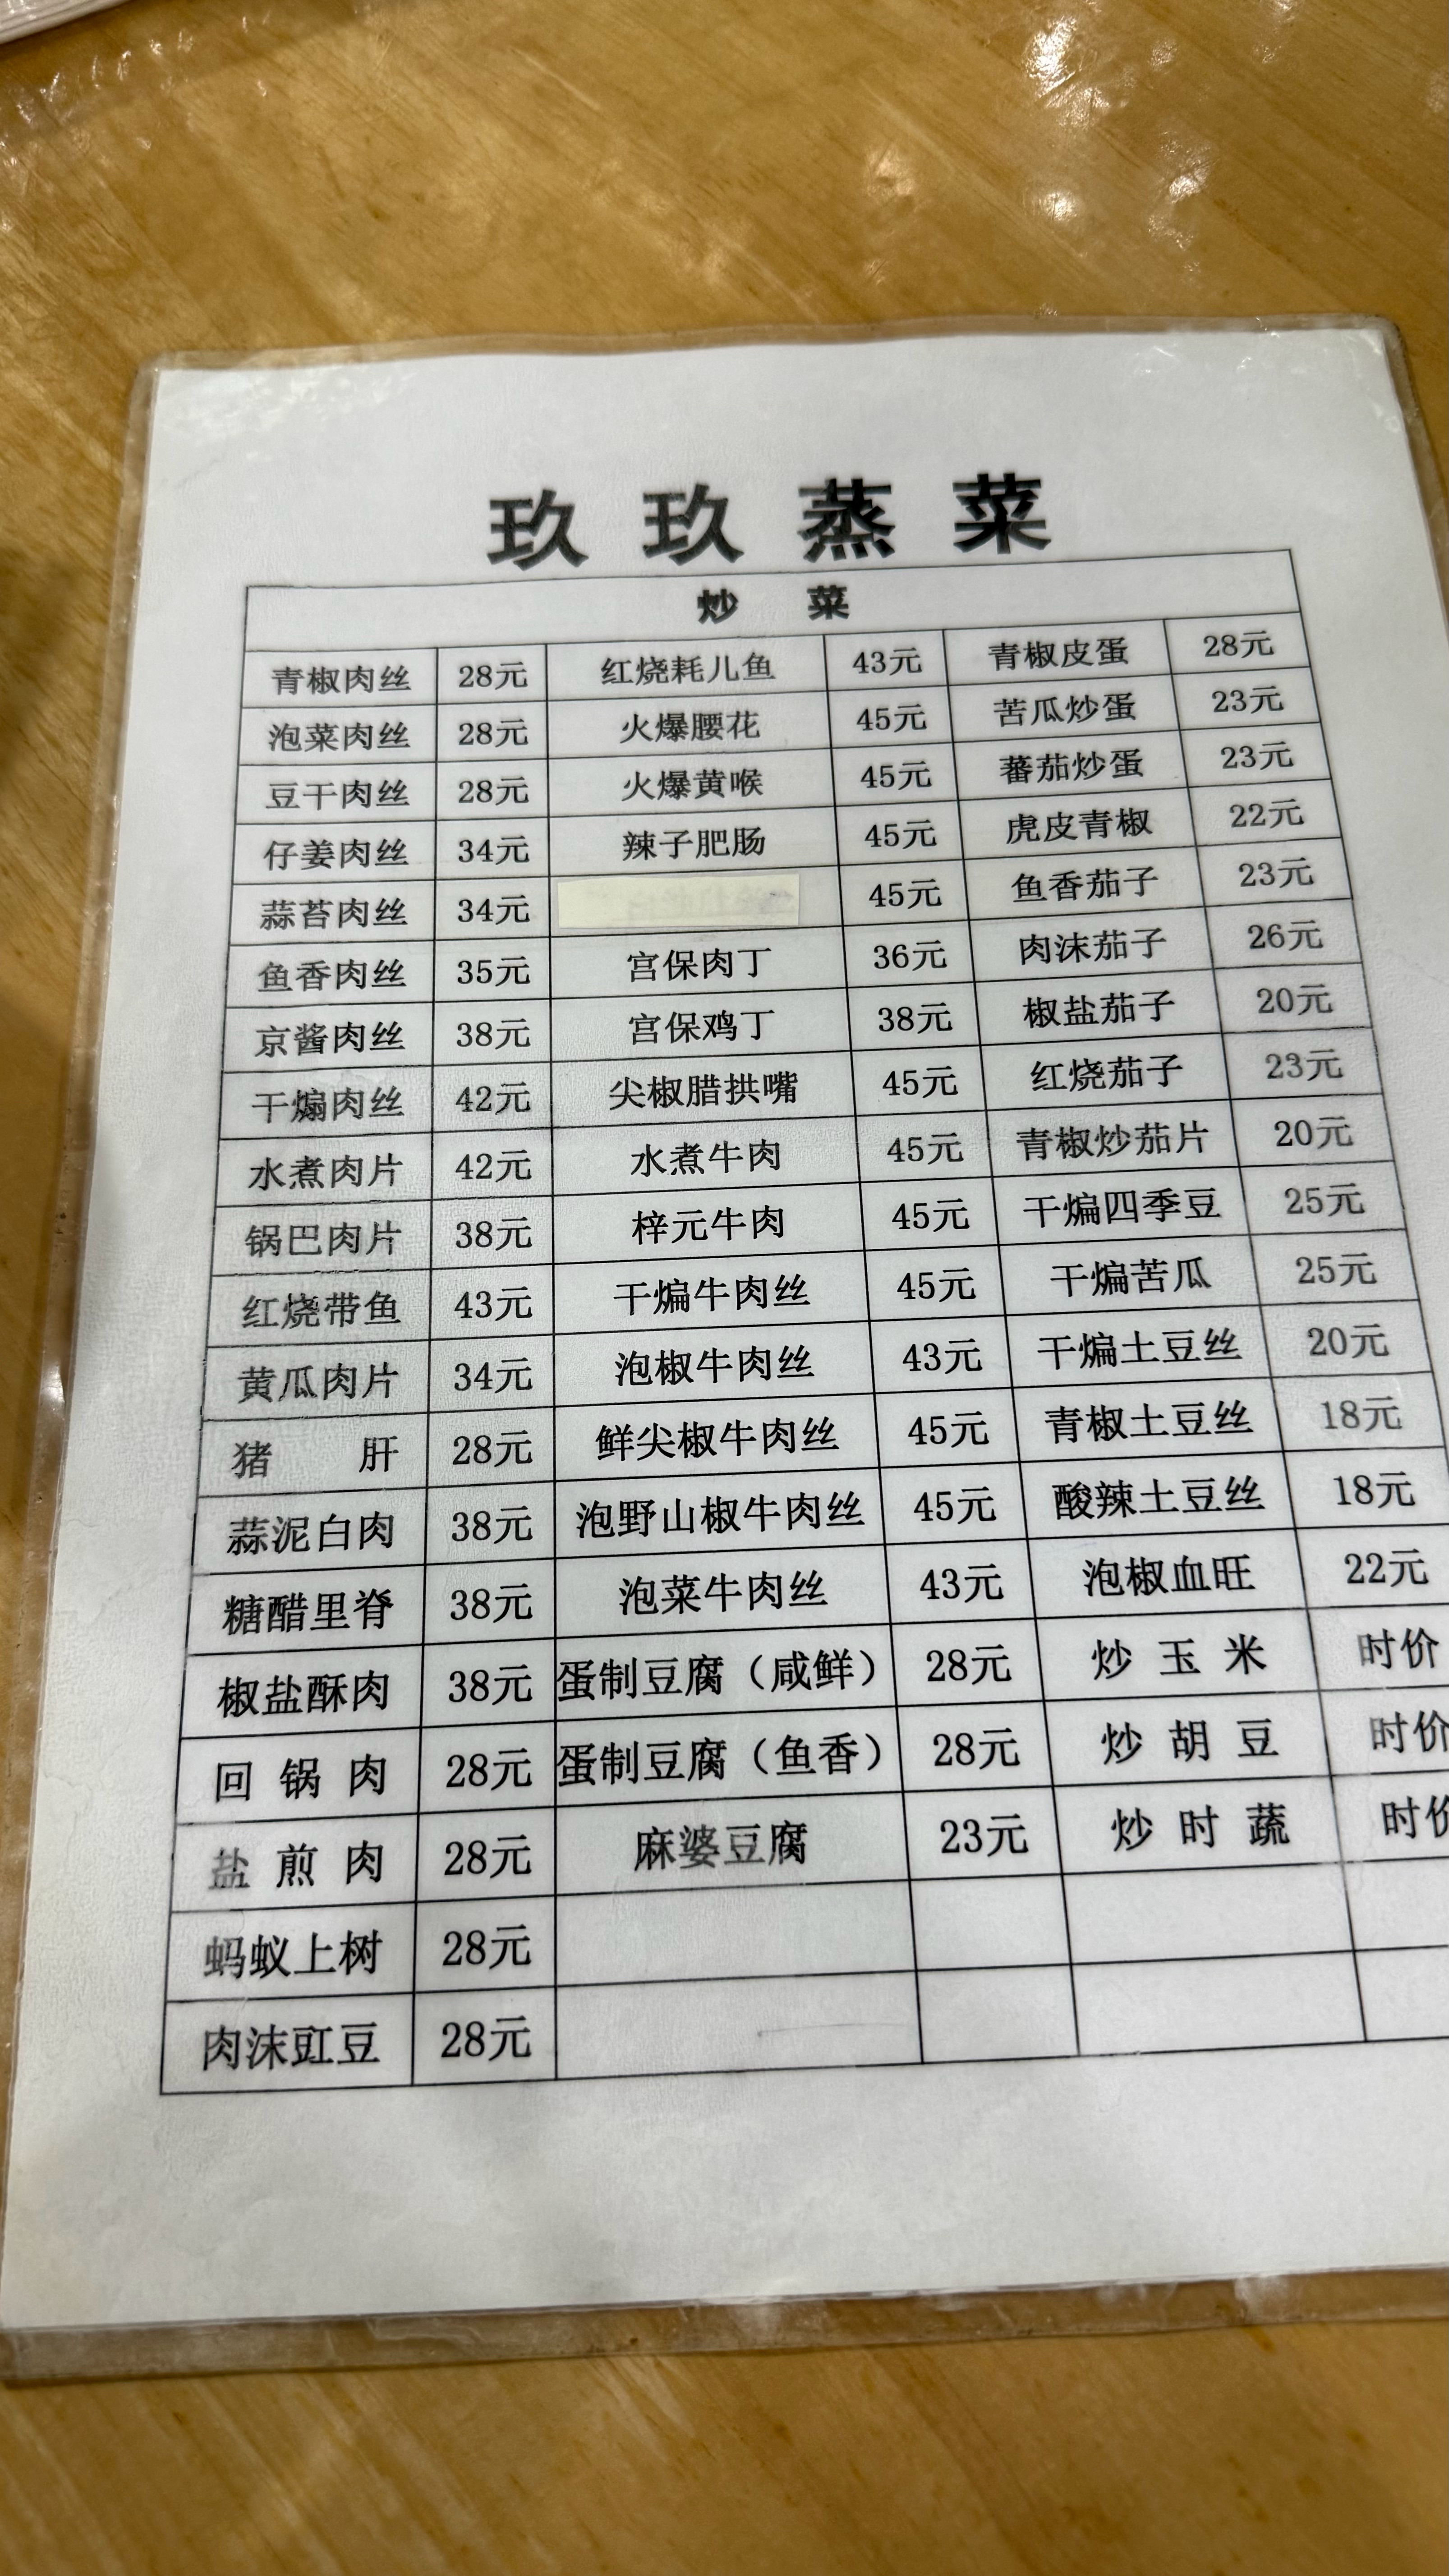 玖玖蒸菜
炒 菜
青椒肉丝 28元 红烧耗儿鱼 43元 青椒皮蛋 28元
泡菜肉丝 28元 火爆腰花 45元 苦瓜炒蛋 23元
豆干肉丝 28元 火爆黄喉 45元 蕃茄炒蛋 23元
仔姜肉丝 34元 辣子肥肠 45元 虎皮青椒 22元
蒜苔肉丝 34元 45元 鱼香茄子 23元
鱼香肉丝 35元 宫保肉丁 36元 肉沫茄子 26元
京酱肉丝 38元 宫保鸡丁 38元 椒盐茄子 20元
干煸肉丝 42元 尖椒腊拱嘴 45元 红烧茄子 23元
水煮肉片 42元 水煮牛肉 45元 青椒炒茄片 20元
锅巴肉片 38元 梓元牛肉 45元 干煸四季豆 25元
红烧带鱼 43元 干煸牛肉丝 45元 干煸苦瓜 25元
黄瓜肉片 34元 泡椒牛肉丝 43元 干煸土豆丝 20元
猪 肝 28元 鲜尖椒牛肉丝 45元 青椒土豆丝 18元
蒜泥白肉 38元 泡野山椒牛肉丝 45元 酸辣土豆丝 18元
糖醋里脊 38元 泡菜牛肉丝 43元 泡椒血旺 22元
椒盐酥肉 38元 蛋制豆腐（咸鲜） 28元 炒玉米 时价
回锅肉 28元 蛋制豆腐（鱼香） 28元 炒胡豆 时价
盐煎肉 28元 麻婆豆腐 23元 炒时蔬 时价
蚂蚁上树 28元
肉沫豇豆 28元